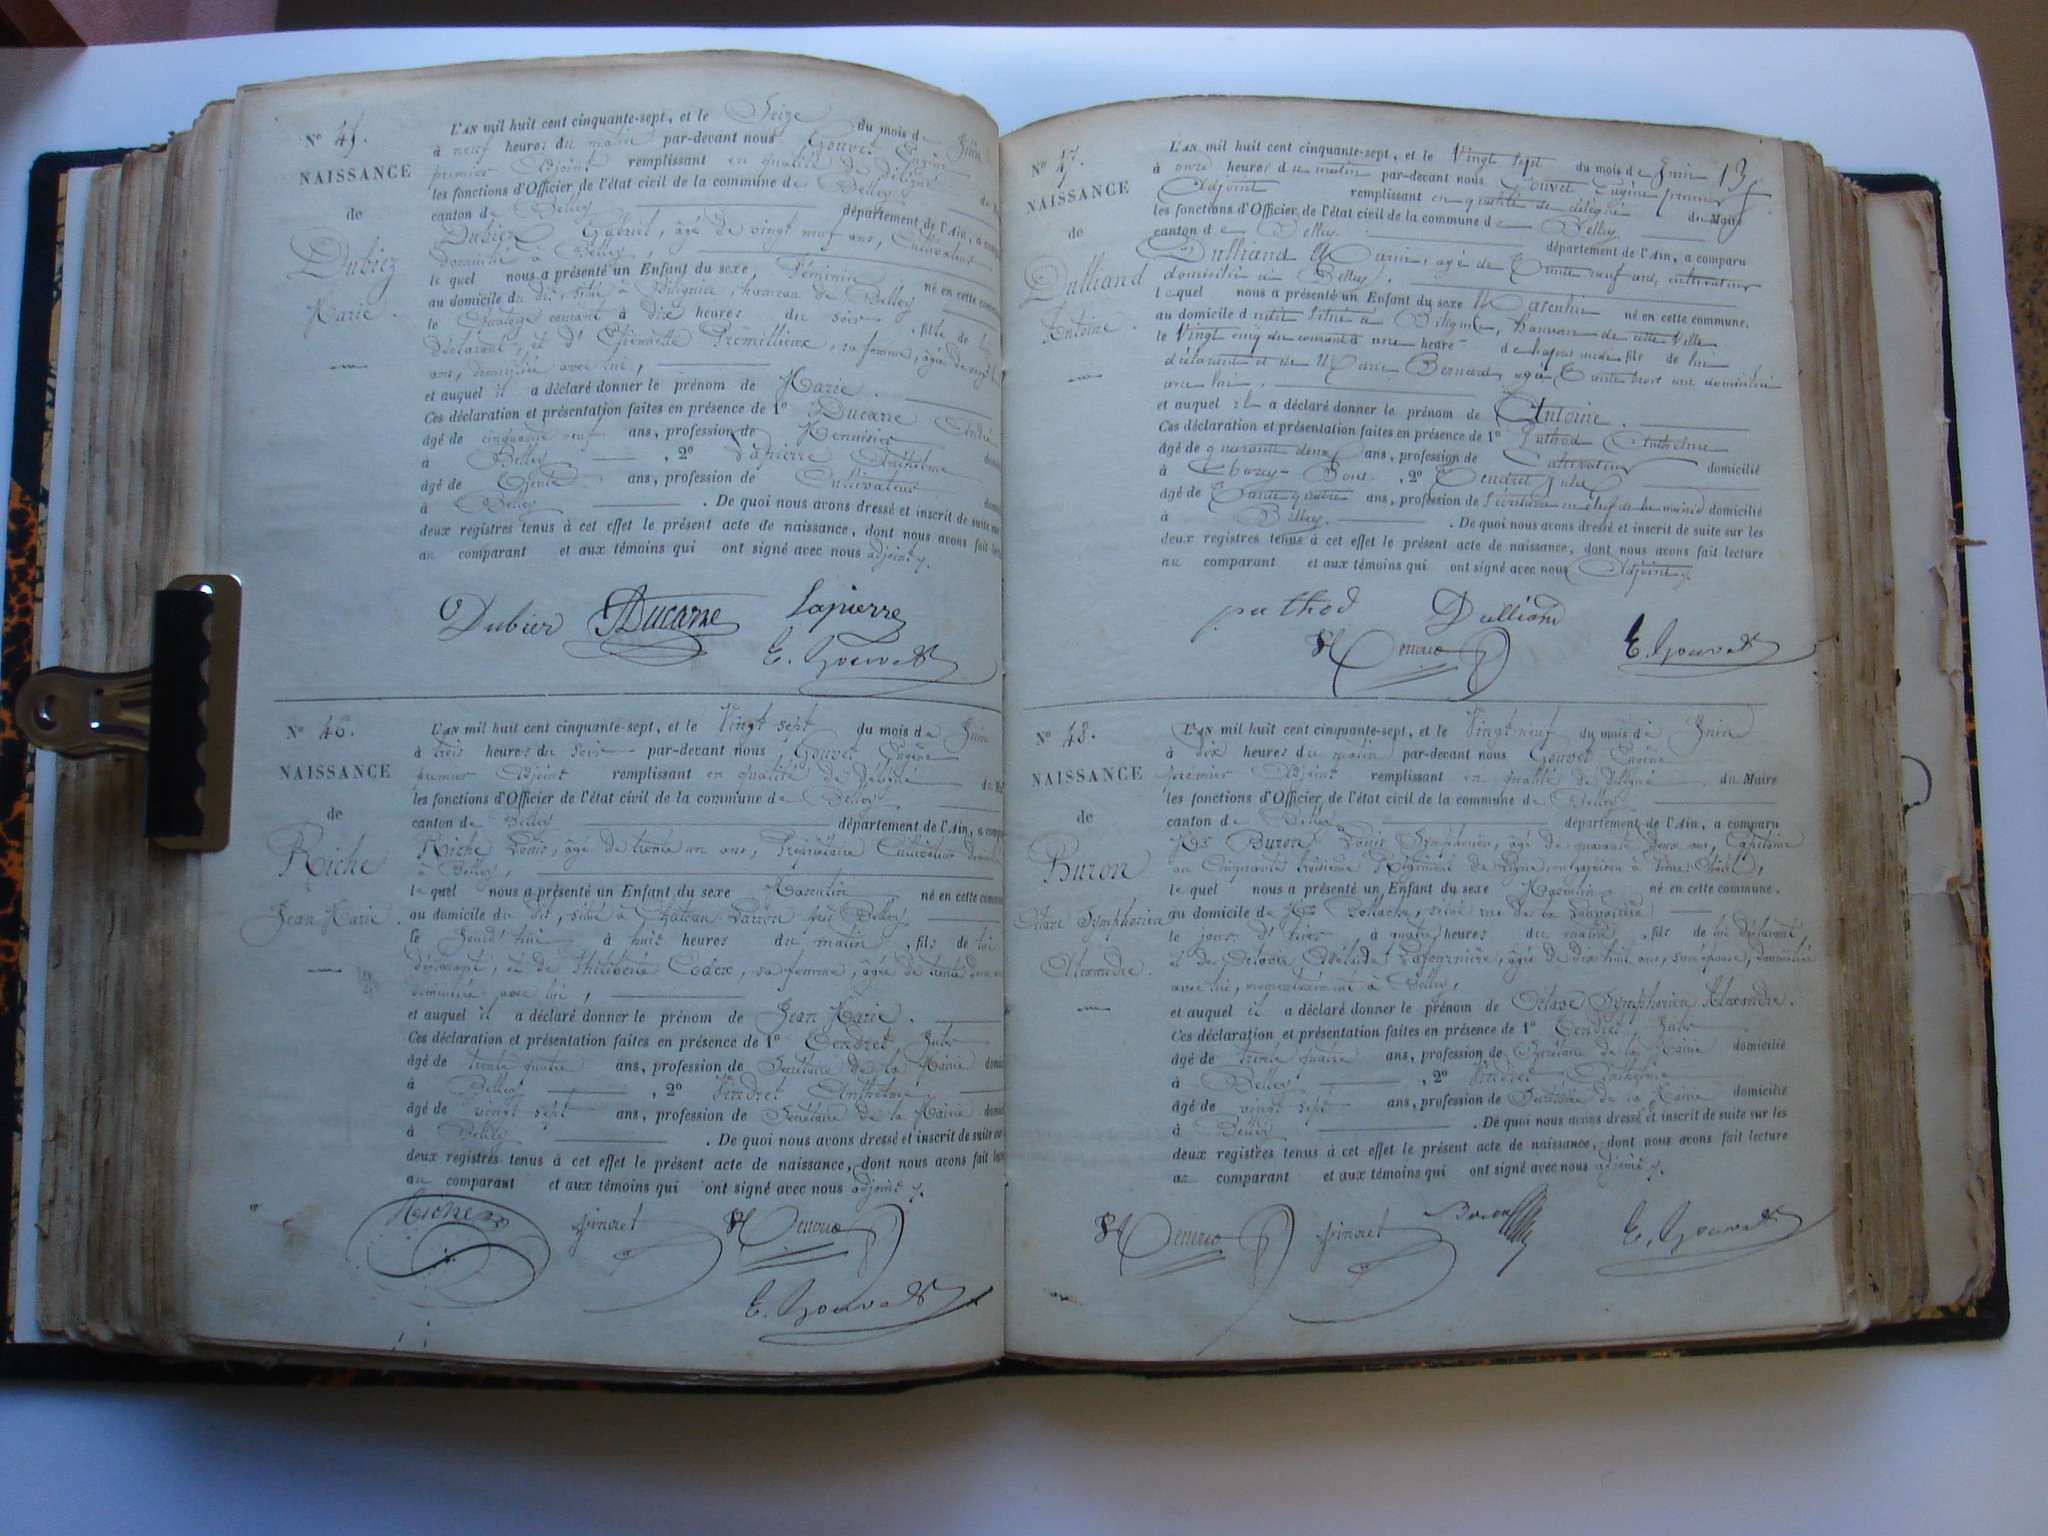 Nº 45.
NAISSANCE
de
Dubiez
Marie.
L'AN mil huit cent cinquante-sept, et le Seize du mois de Juin
à neuf heures du matin par-devant nous Gouvet Eugène
premier Adjoint remplissant en qualité de délégué
les fonctions d'Officier de l'état civil de la commune de Belley
canton de Belley département de l'Ain, a comp
Dubiez Gabriel, âgé de vingt neuf ans, Cultivateur
domicilié à Belley,
lequel nous a présenté un Enfant du sexe, Féminin né en cette comm
au domicile du dit, situé à Billignin, hameau de Belley
le Quatorze courant à dix heures du soir, fille de lui
déclarant, et d' Etiennette Premillieux, sa femme, âgée de vingt
ans, domiciliée avec lui,
et auquel il a déclaré donner le prénom de Marie.
Ces déclaration et présentation faites en présence de 1º Ducarre André
âgé de cinquante neuf ans, profession de Menuisier
à Belley, 2º Lapierre Anthelme
âgé de Trente ans, profession de Cultivateur
à Belley. De quoi nous avons dressé et inscrit de suite sur
deux registres tenus à cet effet le présent acte de naissance, dont nous avons fait lec
au comparant et aux témoins qui ont signé avec nous adjoint.
Dubier Ducarre Lapierre
E. Gouvet
Nº 46.
NAISSANCE
de
Riche
Jean Marie.
L'AN mil huit cent cinquante-sept, et le Vingt sept du mois de Juin
à trois heures du soir par-devant nous Gouvet Eugène
premier Adjoint remplissant en qualité de délégué du M
les fonctions d'Officier de l'état civil de la commune de Belley
canton de Belley département de l'Ain, a comp
Riche Louis, âgé de trente un ans, Propriétaire Cultivateur
à Belley,
lequel nous a présenté un Enfant du sexe Masculin né en cette comm
au domicile du dit, situé à Château Larron près Belley
le Jourd'hui à huit heures du matin, fils de lui
déclarant, et de Philiberte Codex, sa femme, âgée de trente
domiciliée avec lui,
et auquel il a déclaré donner le prénom de Jean Marie.
Ces déclaration et présentation faites en présence de 1º Tendret, Jules
âgé de trente quatre ans, profession de Secrétaire de la Mairie
à Belley, 2º Pindret Anthelme
âgé de vingt sept ans, profession de Secrétaire de la Mairie
à Belley. De quoi nous avons dressé et inscrit de suite sur
deux registres tenus à cet effet le présent acte de naissance, dont nous avons fait lec
au comparant et aux témoins qui ont signé avec nous adjoint.
Riche
E. Gouvet
13
Nº 47.
NAISSANCE
de
Dulliand
Antoine.
L'AN mil huit cent cinquante-sept, et le Vingt sept du mois de Juin
à onze heures du matin par-devant nous Gouvet Eugène premier
Adjoint remplissant en qualité de délégué du Maire
les fonctions d'Officier de l'état civil de la commune de Belley
canton de Belley département de l'Ain, a comparu
Dulliand Marin, âgé de Trente neuf ans, cultivateur
domicilié à Belley.
lequel nous a présenté un Enfant du sexe Masculin né en cette commune.
au domicile du dit situé à Biligni, hameau de cette Ville
le Vingt cinq du courant à une heure de l'après midi fils de lui
déclarant et de Marie Bernard, agée Trente trois ans domiciliée
avec lui,
et auquel il a déclaré donner le prénom de Antoine.
Ces déclaration et présentation faites en présence de 1º Puthod Anthelme
âgé de quarante deux ans, profession de Cultivateur domicilié
à Chazey-Bons, 2º Tendret Jules
âgé de Trente quatre ans, profession de Secrétaire en chef de la mairie domicilié
à Belley. De quoi nous avons dressé et inscrit de suite sur les
deux registres tenus à cet effet le présent acte de naissance, dont nous avons fait lecture
au comparant et aux témoins qui ont signé avec nous Adjoint
puthod Dulliand
E. Gouvet
Nº 48.
NAISSANCE
de
Buron
Octave Symphorien
Alexandre.
L'AN mil huit cent cinquante-sept, et le Vingt-neuf du mois de Juin
à dix heures du matin par-devant nous Gouvet Eugène
premier Adjoint remplissant en qualité de délégué du Maire
les fonctions d'Officier de l'état civil de la commune de Belley
canton de Belley département de l'Ain, a comparu
Mr Buron Louis Symphorien, âgé de quarante deux ans, Capitaine
au Cinquante troisième Régiment de Ligne,
lequel nous a présenté un Enfant du sexe Masculin né en cette commune.
au domicile de Mr situé rue de la
le jour d'hier, à quatre heures du matin, fils de lui déclarant,
et de Adélaïde Lafournière, âgée de dix huit ans, son épouse, domiciliée
avec lui, momentanément à Belley,
et auquel il a déclaré donner le prénom de Octave Symphorien Alexandre.
Ces déclaration et présentation faites en présence de 1º Tendret, Jules
âgé de trente quatre ans, profession de Secrétaire de la Mairie domicilié
à Belley, 2º Pindret Anthelme
âgé de vingt sept ans, profession de Secrétaire de la Mairie domicilié
à Belley. De quoi nous avons dressé et inscrit de suite sur les
deux registres tenus à cet effet le présent acte de naissance, dont nous avons fait lecture
au comparant et aux témoins qui ont signé avec nous adjoint.
Buron E. Gouvet